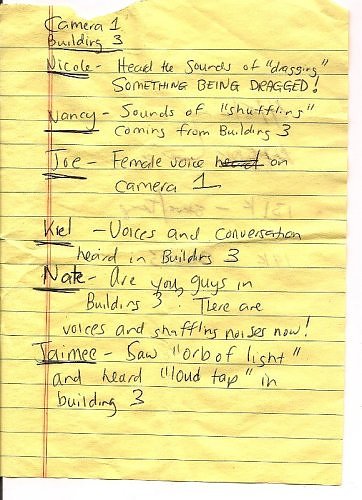 Camera 1
Building 3
Nicole - Heard the sounds of "dragging"
SOMETHING BEING DRAGGED!
Nancy - Sounds of "shuffling"
coming from Building 3
Joe - Female voice heard on
camera 1
Kiel - Voices and conversation
heard in Building 3
Nate - Are you guys in
Building 3? There are
voices and shuffling noises now!
Jaimee - Saw "orb of light"
and heard "loud tap" in
building 3